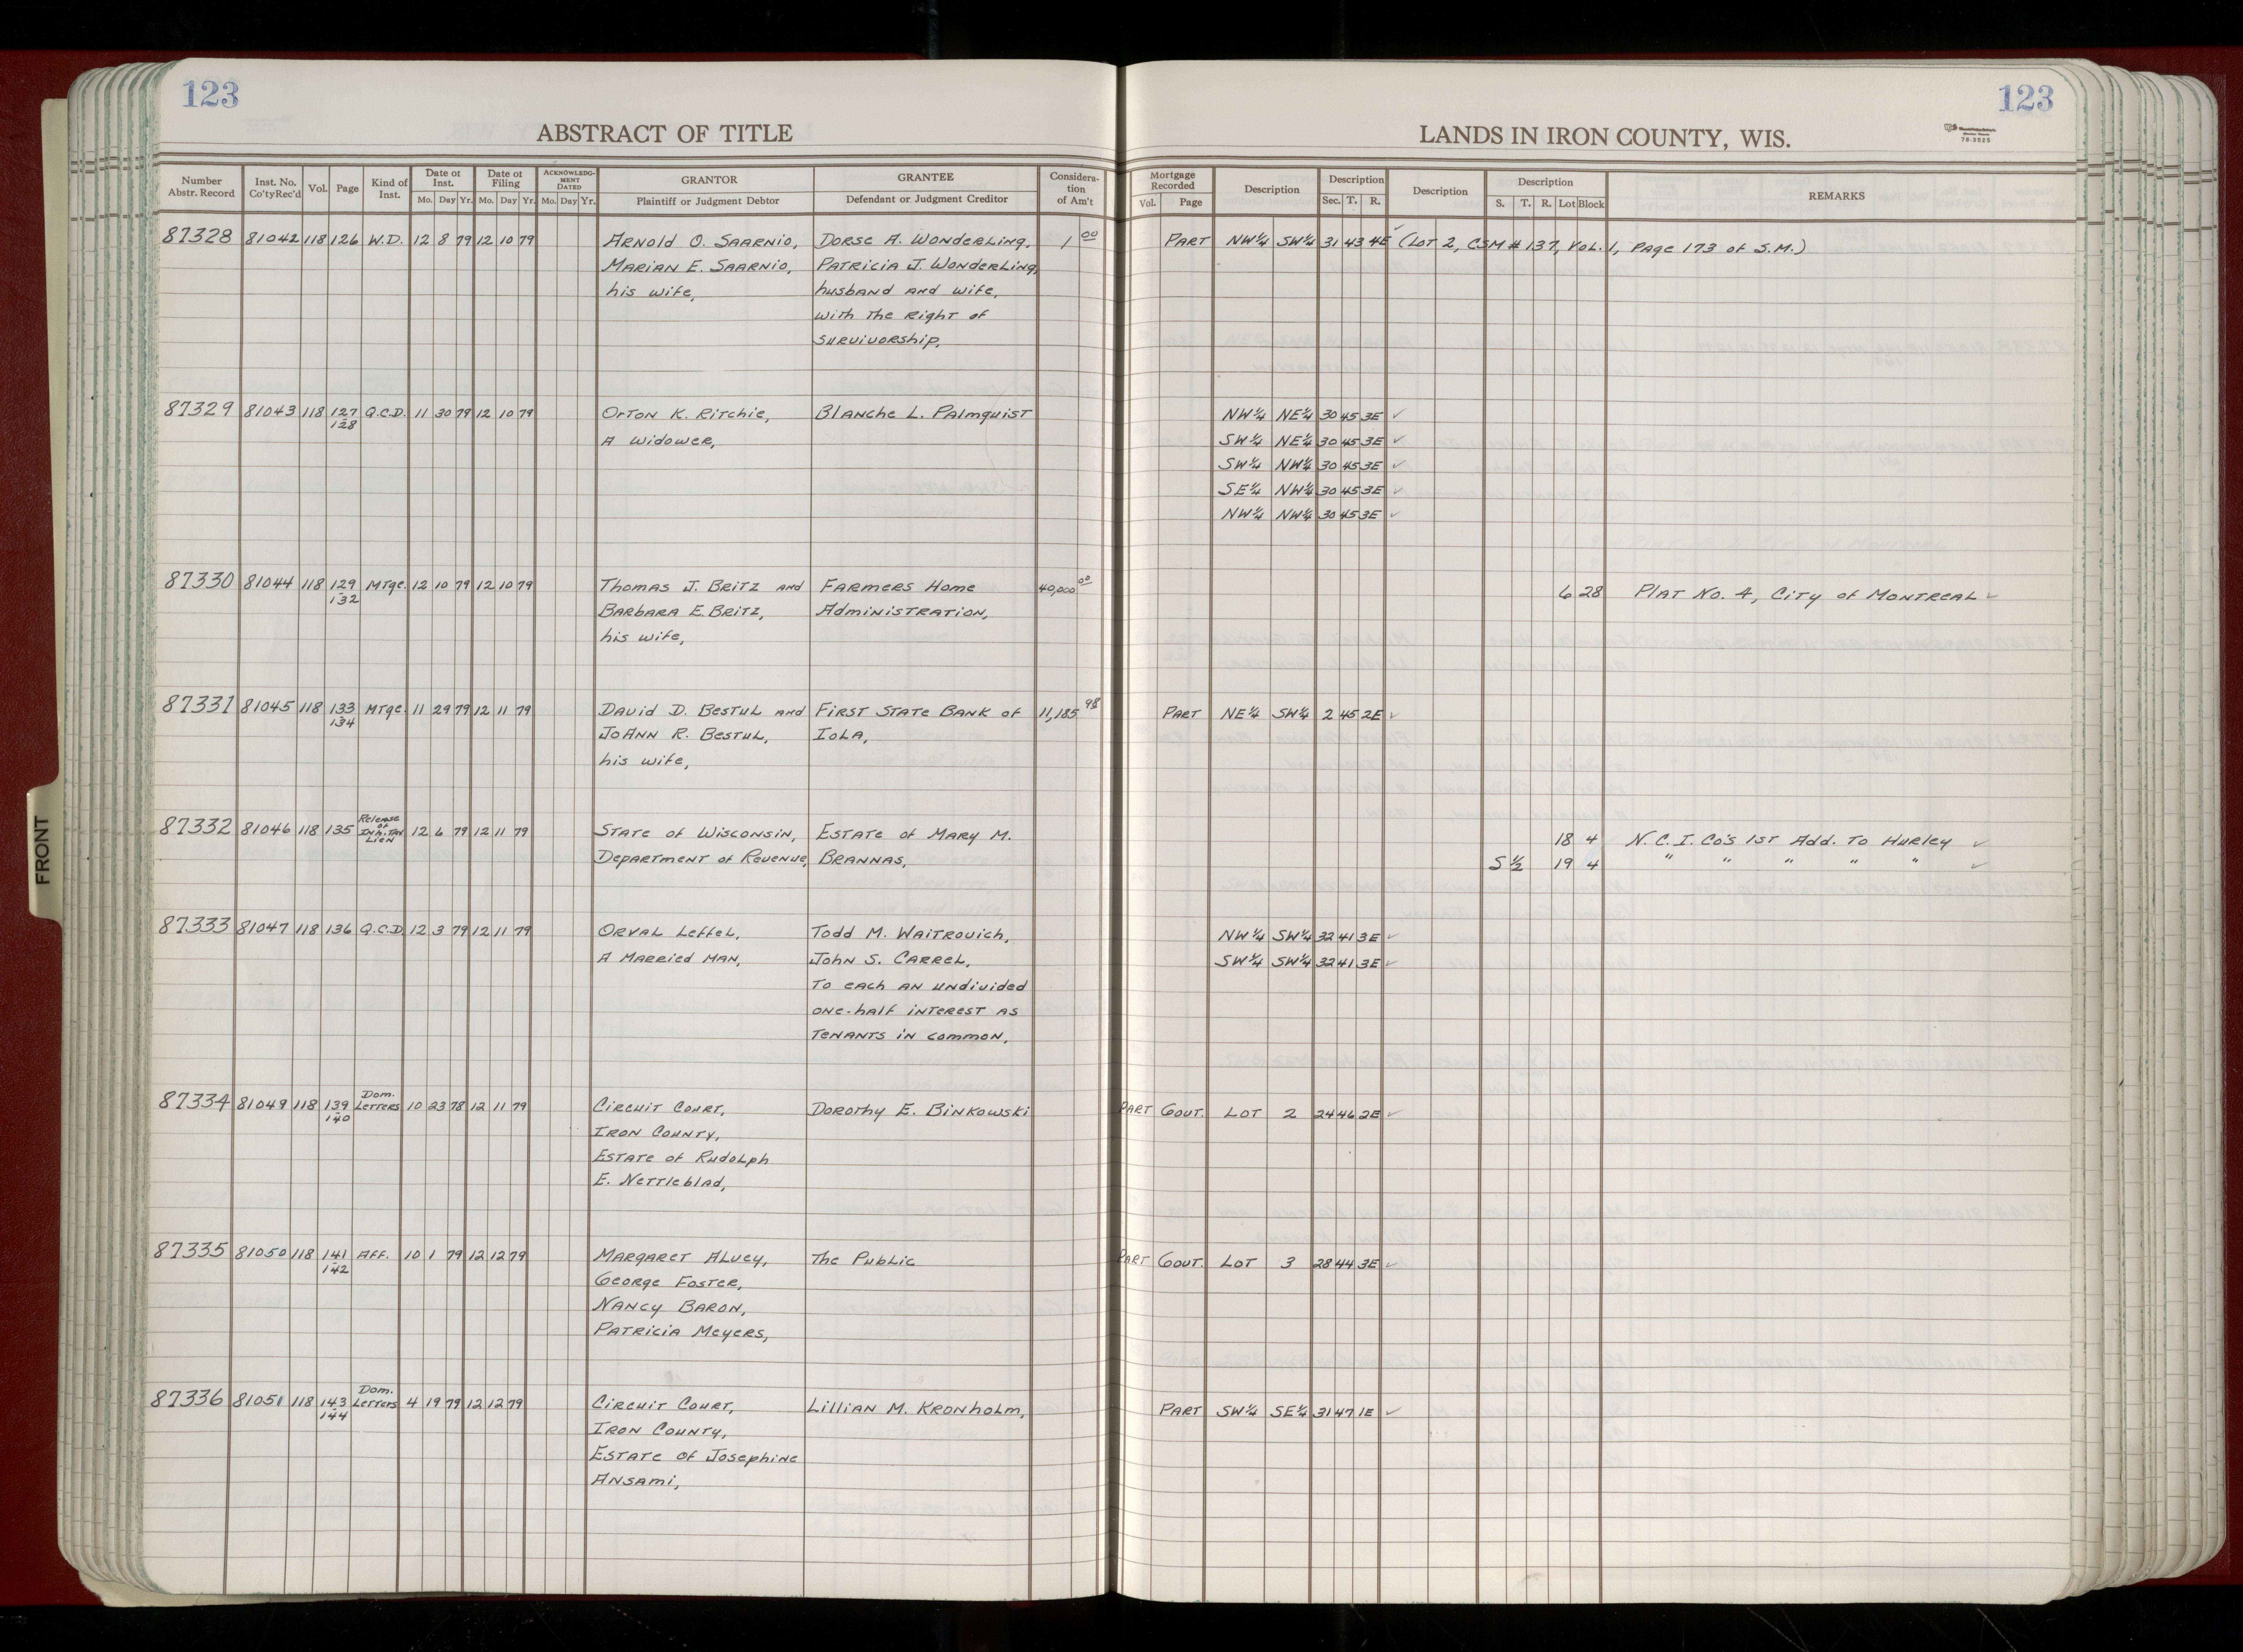 123
123
ABSTRACT OF TITLE
LANDS IN IRON COUNTY, WIS.
78-3525
Number Abstr. Record | Inst. No. Co'tyRec'd | Vol. | Page | Kind of Inst. | Date of Inst. Mo. Day Yr. | Date of Filing Mo. Day Yr. | ACKNOWLEDG-MENT DATED Mo. Day Yr. | GRANTOR Plaintiff or Judgment Debtor | GRANTEE Defendant or Judgment Creditor | Considera-tion of Am't | Mortgage Recorded Vol. Page | Description | Description Sec. T. R. | Description | Description S. T. R. Lot Block | REMARKS
87328 81042 118 126 W.D. 12 8 79 12 10 79 Arnold O. Saarnio, Dorse A. Wonderling, 1 00 Part NW¼ SW¼ 31 43 4E ✓ (Lot 2, CSM # 137, Vol. 1, Page 173 of S.M.)
Marian E. Saarnio, Patricia J. Wonderling,
his wife, husband and wife,
with the right of
survivorship,
87329 81043 118 127-128 Q.C.D. 11 30 79 12 10 79 Orton K. Ritchie, Blanche L. Palmquist NW¼ NE¼ 30 45 3E ✓
A widower, SW¼ NE¼ 30 45 3E ✓
SW¼ NW¼ 30 45 3E ✓
SE¼ NW¼ 30 45 3E ✓
NW¼ NW¼ 30 45 3E ✓
87330 81044 118 129-132 Mtge. 12 10 79 12 10 79 Thomas J. Britz and Farmers Home 40,000 00 6 28 Plat No. 4, City of Montreal ✓
Barbara E. Britz, Administration,
his wife,
87331 81045 118 133-134 Mtge. 11 29 79 12 11 79 David D. Bestul and First State Bank of 11,185 98 Part NE¼ SW¼ 2 45 2E ✓
JoAnn R. Bestul, Iola,
his wife,
87332 81046 118 135 Release of Inh. Tax Lien 12 6 79 12 11 79 State of Wisconsin, Estate of Mary M. 18 4 N.C.I. Co's 1st Add. To Hurley ✓
Department of Revenue, Brannas, S ½ 19 4 " " " " " ✓
87333 81047 118 136 Q.C.D. 12 3 79 12 11 79 Orval Leffel, Todd M. Waitrovich, NW¼ SW¼ 32 41 3E ✓
A Married Man, John S. Carrel, SW¼ SW¼ 32 41 3E ✓
To each an undivided
one-half interest as
tenants in common,
87334 81049 118 139-140 Dom. Letters 10 23 78 12 11 79 Circuit Court, Dorothy E. Binkowski Part Govt. Lot 2 24 46 2E ✓
Iron County,
Estate of Rudolph
E. Nettleblad,
87335 81050 118 141-142 Aff. 10 1 79 12 12 79 Margaret Alvey, The Public Part Govt. Lot 3 28 44 3E ✓
George Foster,
Nancy Baron,
Patricia Meyers,
87336 81051 118 143-144 Dom. Letters 4 19 79 12 12 79 Circuit Court, Lillian M. Kronholm, Part SW¼ SE¼ 31 47 1E ✓
Iron County,
Estate of Josephine
Ansami,
FRONT